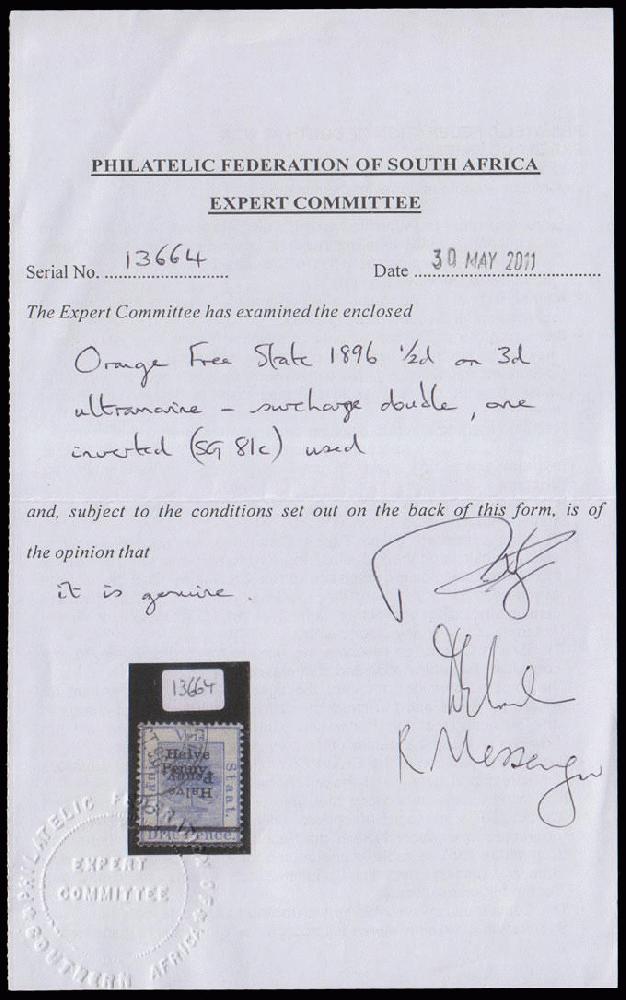 PHILATELIC FEDERATION OF SOUTH AFRICA
EXPERT COMMITTEE
Serial No. 13664
Date 30 MAY 2011
The Expert Committee has examined the enclosed
Orange Free State 1896 ½d on 3d
ultramarine - surcharge double, one
inverted (SG 81c) used
and, subject to the conditions set out on the back of this form, is of
the opinion that
it is genuine.
R Messenger
13664
Vrij
Halve
Penny
Penny
Halve
Staat.
Drie Pence.
PHILATELIC FEDERATION OF SOUTHERN AFRICA
EXPERT
COMMITTEE